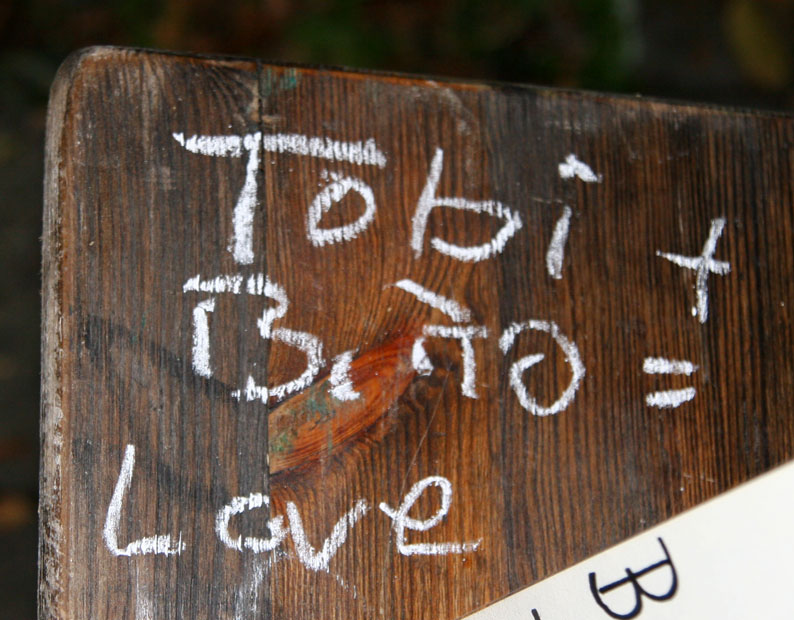 Tobi +
Bino =
Love
B